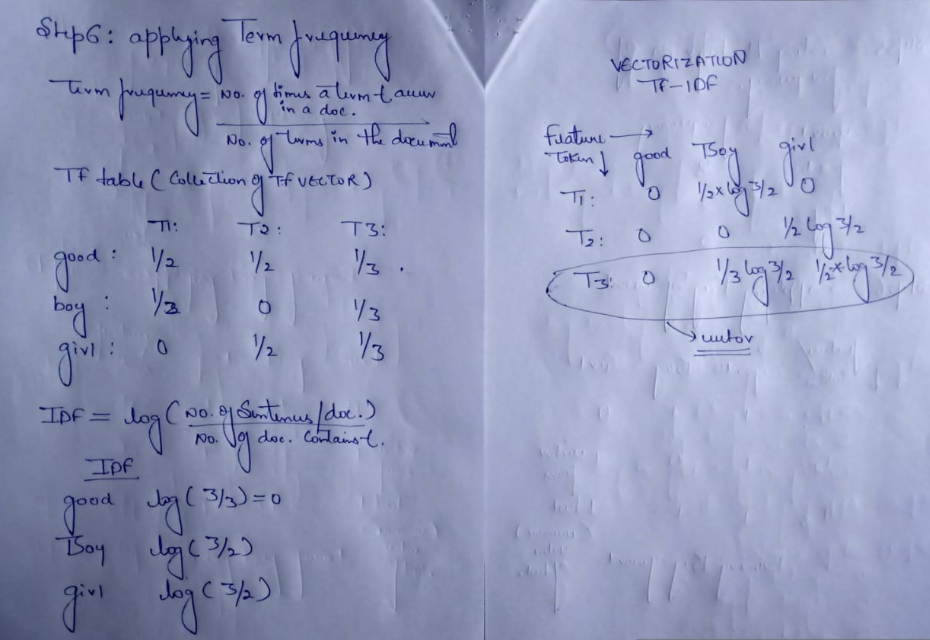 Step6: applying Term frequency
Term frequency = No. of times a term t occur in a doc.
No. of terms in the document
TF table (Collection of TF VECTOR)
T1: T2: T3:
good: 1/2 1/2 1/3 .
boy : 1/2 0 1/3
girl : 0 1/2 1/3
IDF = log( No. of Sentences/doc. )
No. of doc. Contains t.
IDF
good log(3/3)=0
Boy log(3/2)
girl log(3/2)
VECTORIZATION
TF-IDF
Feature →
Token ↓ good Boy girl
T1: 0 1/2 × log 3/2 0
T2: 0 0 1/2 log 3/2
T3: 0 1/3 log 3/2 1/2 * log 3/2
vector